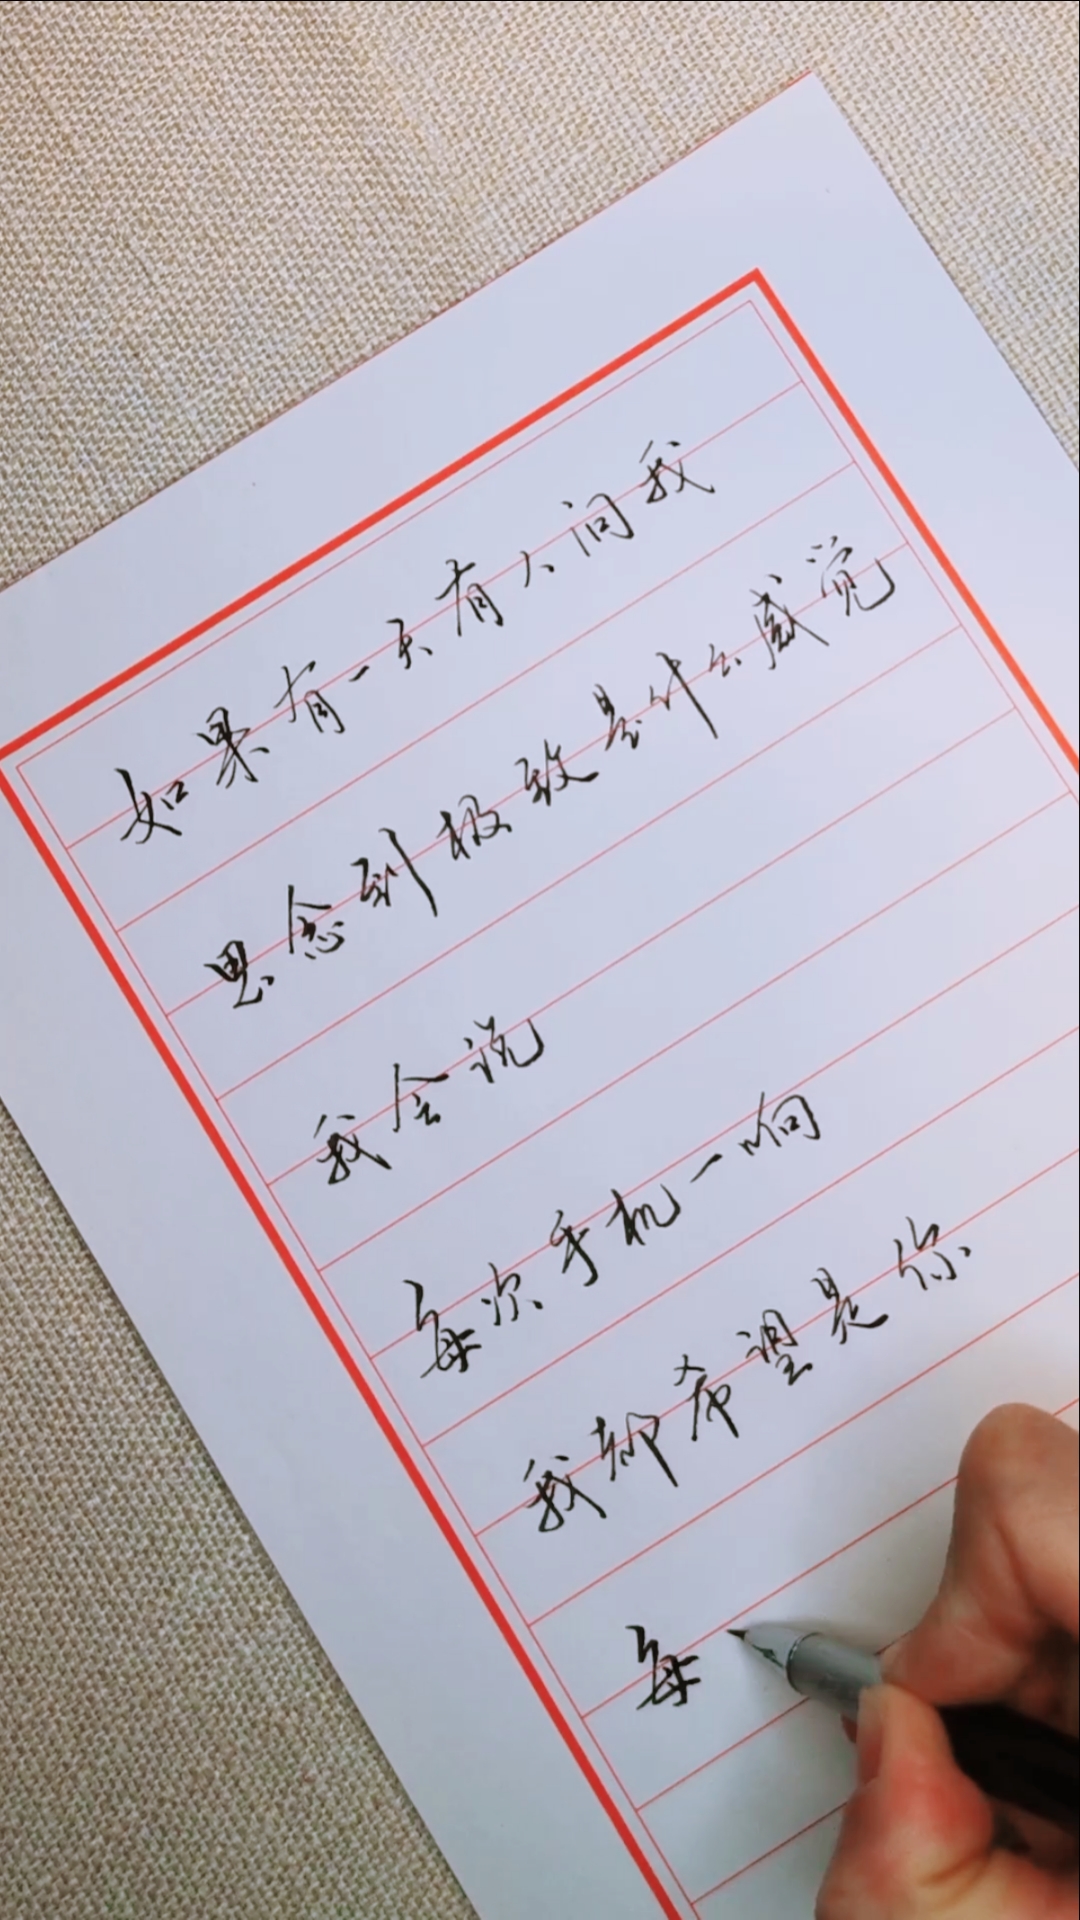 如果有一天有人问我
思念到极致是什么感觉
我会说
每次手机一响
我都希望是你
每